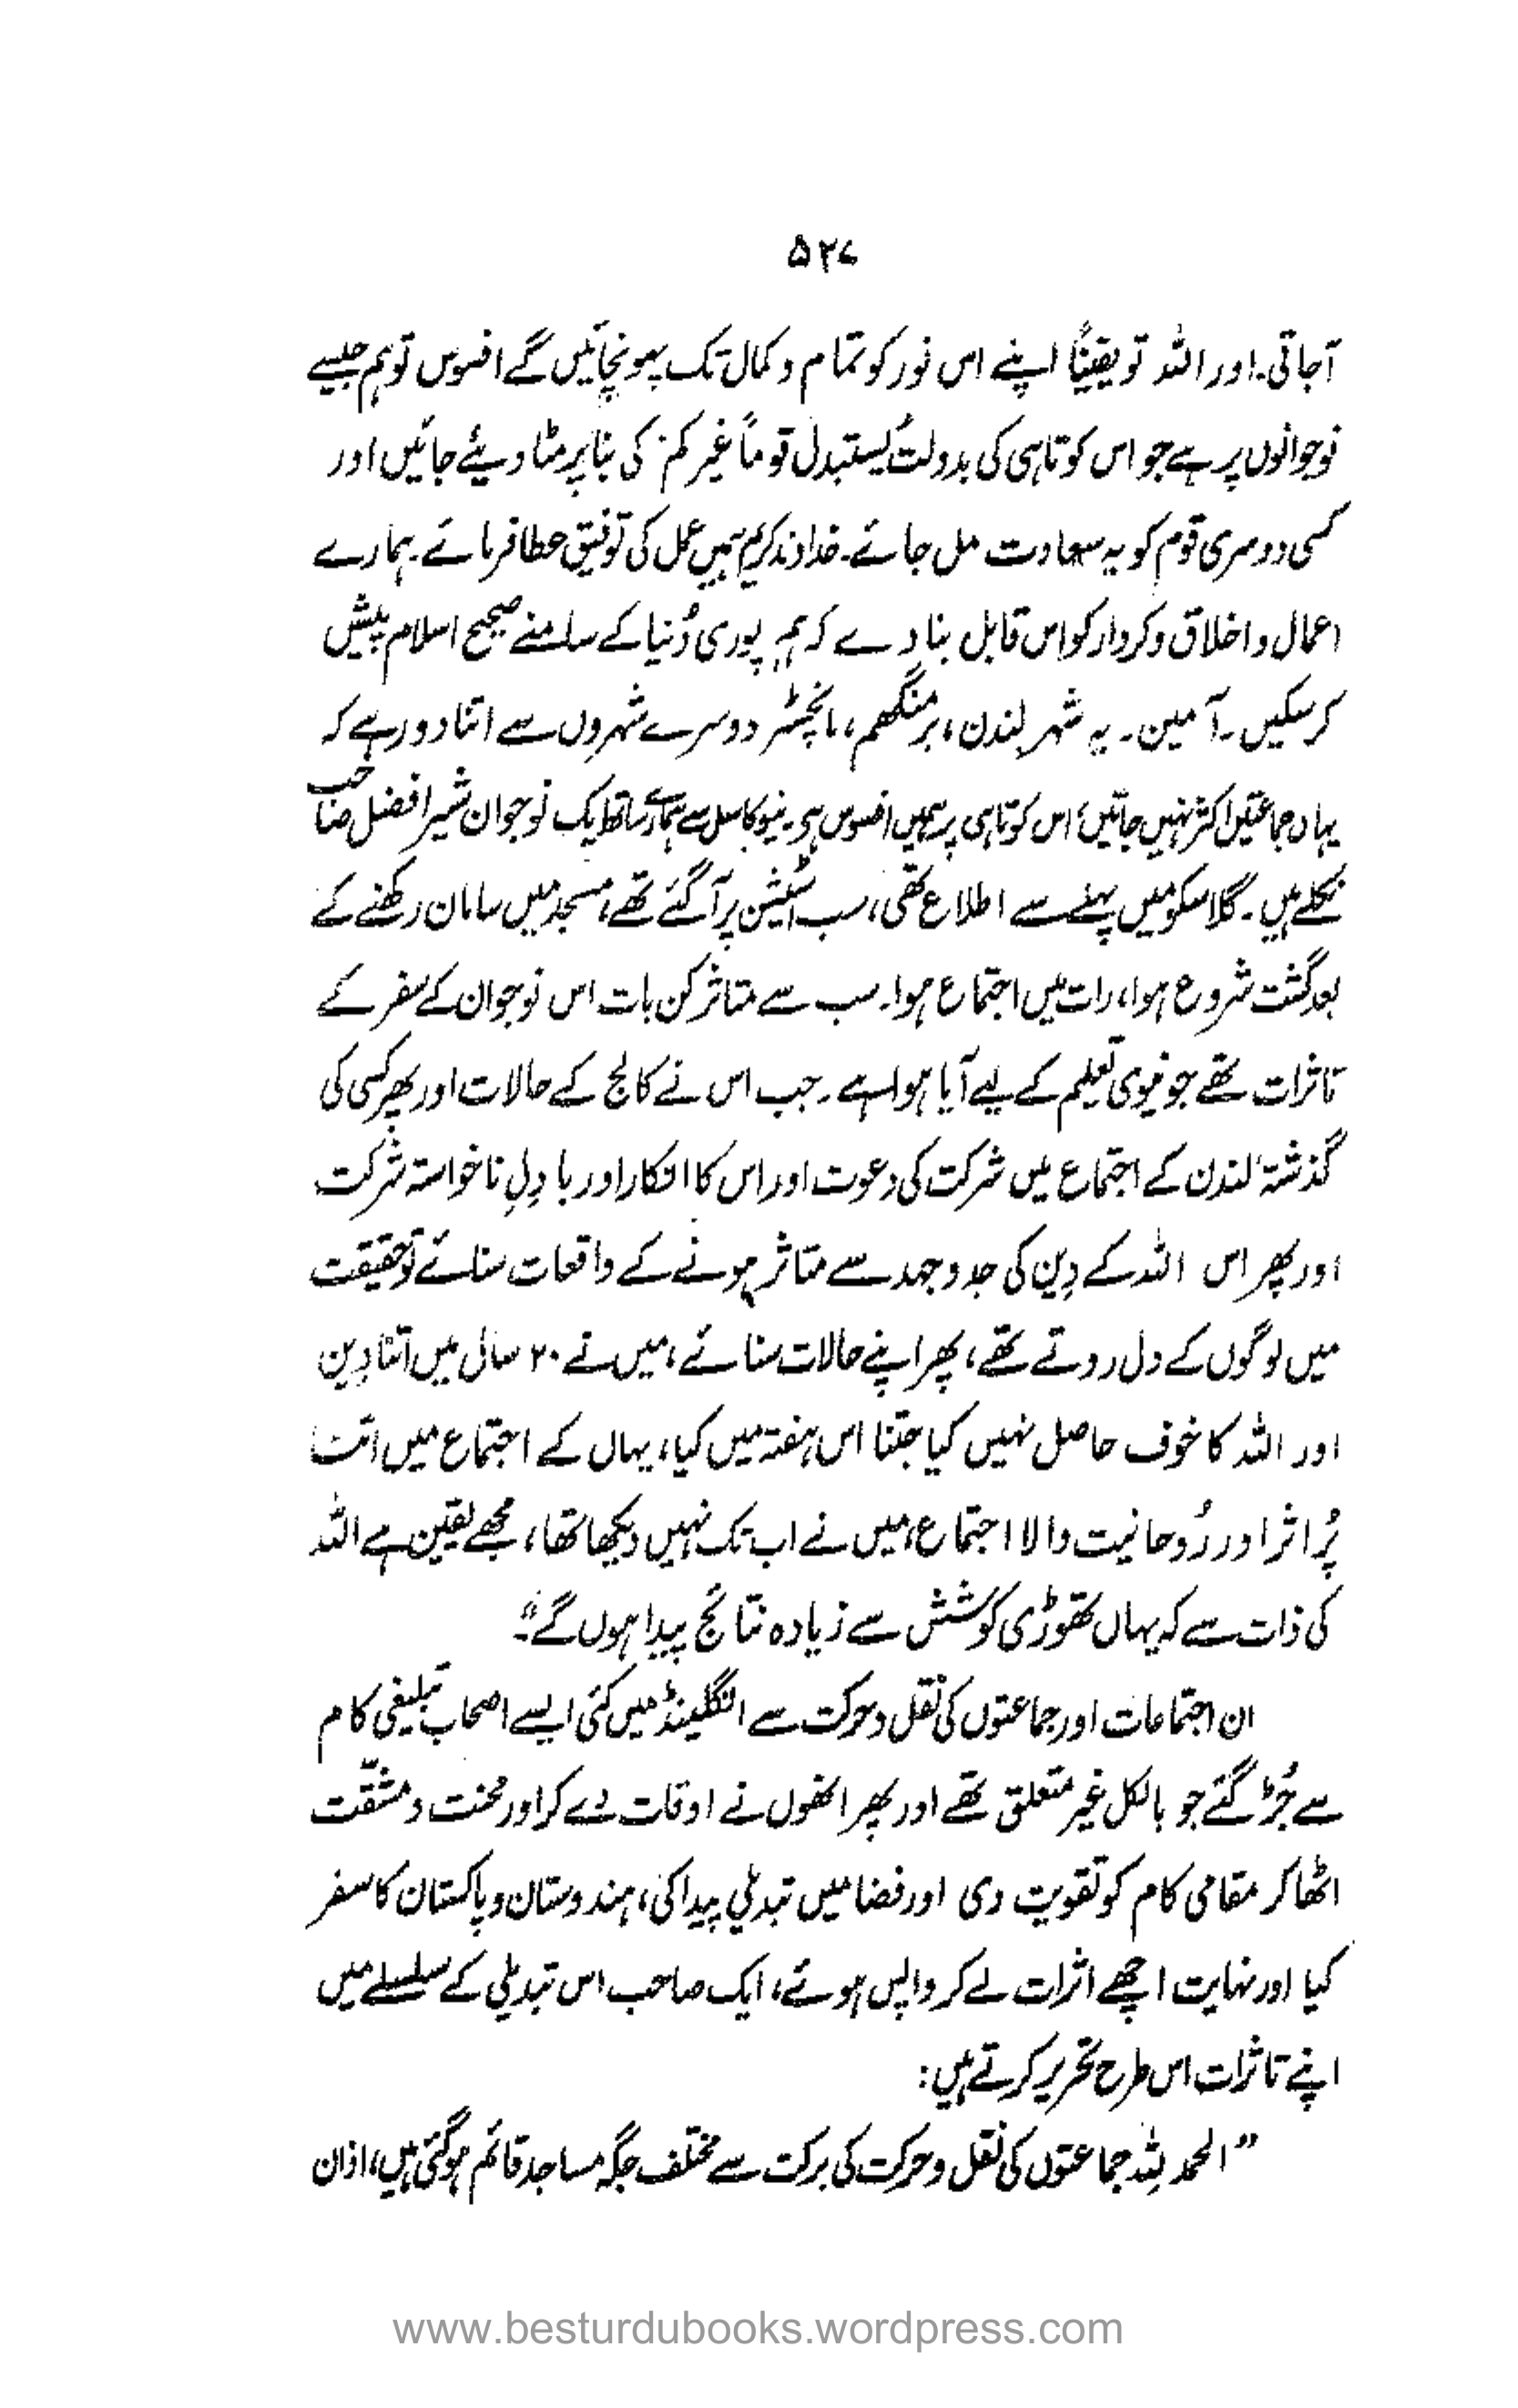 ۵۲۷
آجاتی۔ اور اللہ تو یقیناً اپنے اس نور کو تمام و کمال تک پہونچائیں گے افسوس تو ہم جیسے
نوجوانوں پر ہے جو اس کوتاہی کی بدولت یستبدل قوماً غیرکم کی بنا پر مٹا دیئے جائیں اور
کسی دوسری قوم کو یہ سعادت مل جائے۔ خداوند کریم ہمیں عمل کی توفیق عطا فرمائے۔ ہمارے
اعمال و اخلاق و کردار کو اس قابل بنا دے کہ ہم پوری دُنیا کے سامنے صحیح اسلام پیش
کر سکیں۔ آمین۔ یہ شہر لندن، برمنگھم، مانچسٹر دوسرے شہروں سے اتنا دور ہے کہ
یہاں جماعتیں اکثر نہیں جاتیں، اس کوتاہی پر ہمیں افسوس ہے۔ نیو کاسل سے ہمارے ساتھ ایک نوجوان شیر افضل صاحب
نکلے ہیں۔ گلاسکو میں پہلے سے اطلاع تھی، سب اسٹیشن پر آگئے تھے، مسجد میں سامان رکھنے کے
بعد گشت شروع ہوا، رات میں اجتماع ہوا۔ سب سے متاثر کن بات اس نوجوان کے سفر کے
تاثرات تھے جو نیوی تعلیم کے لیے آیا ہوا ہے۔ جب اس نے کالج کے حالات اور پھر کسی کی
گذشتہ لندن کے اجتماع میں شرکت کی دعوت اور اس کا انکار اور با دِلِ ناخواستہ شرکت
اور پھر اس اللہ کے دِین کی جدوجہد سے متاثر ہونے کے واقعات سنائے تو حقیقت
میں لوگوں کے دل روتے تھے، پھر اپنے حالات سنائے، میں نے ۲۰ سال میں اتنا دِین
اور اللہ کا خوف حاصل نہیں کیا جتنا اس ہفتہ میں کیا، یہاں کے اجتماع میں اتنا
پُر اثر اور رُوحانیت والا اجتماع، میں نے اب تک نہیں دیکھا تھا، مجھے یقین ہے اللہ
کی ذات سے کہ یہاں تھوڑی کوشش سے زیادہ نتائج پیدا ہوں گے۔“
ان اجتماعات اور جماعتوں کی نقل و حرکت سے انگلینڈ میں کئی ایسے اصحاب تبلیغی کام
سے جُڑ گئے جو بالکل غیر متعلق تھے اور پھر انھوں نے اوقات دے کر اور محنت و مشقّت
اٹھا کر مقامی کام کو تقویت دی اور فضا میں تبدیلی پیدا کی، ہندوستان و پاکستان کا سفر
کیا اور نہایت اچھے اثرات لے کر واپس ہوئے، ایک صاحب اس تبدیلی کے سلسلے میں
اپنے تاثرات اس طرح تحریر کرتے ہیں:
”الحمد للہ جماعتوں کی نقل و حرکت کی برکت سے مختلف جگہ مساجد قائم ہوگئی ہیں، اذان
www.besturdubooks.wordpress.com